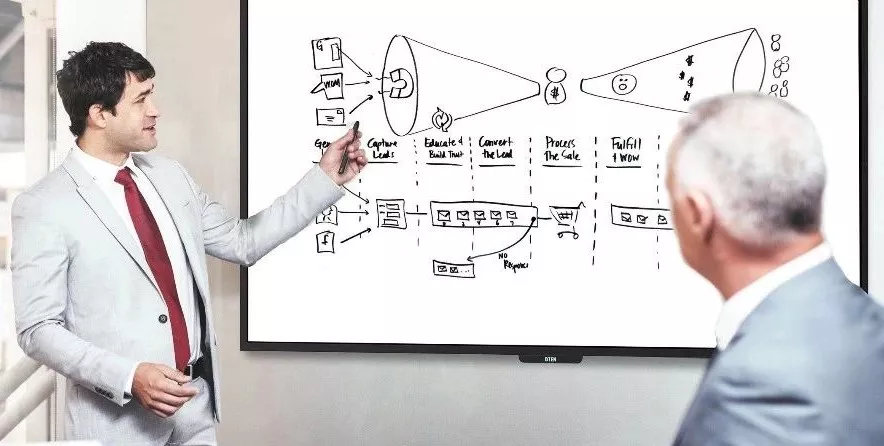 G
WOM
$
$
$
$
$
Capture
Leads
Educate &
Build Trust
Convert
the Lead
Process
The Sale
Fulfill
& WOW
f
No
Response
DTEN